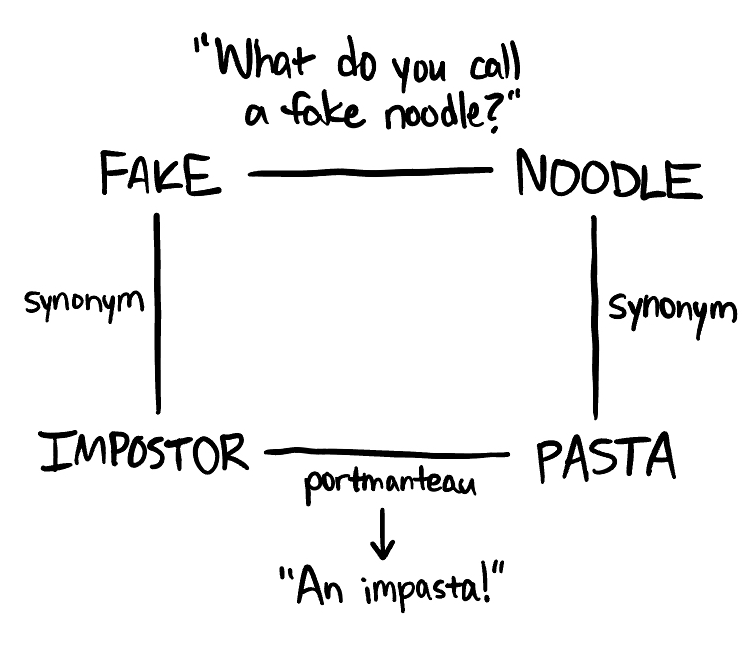 "What do you call
a fake noodle?"
FAKE NOODLE
synonym synonym
IMPOSTOR PASTA
portmanteau
"An impasta!"